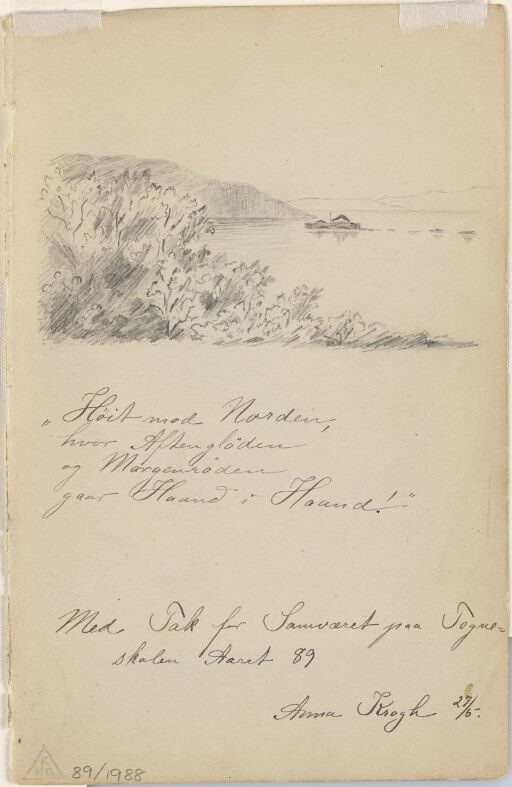 „Höit mod Norden,
hvor Aftenglöden
og Morgenröden
gaar Haand i Haand!"
Med Tak for Samværet paa Tegne=
skolen Aaret 89
Anna Krogh 27/5.
K
89/1988